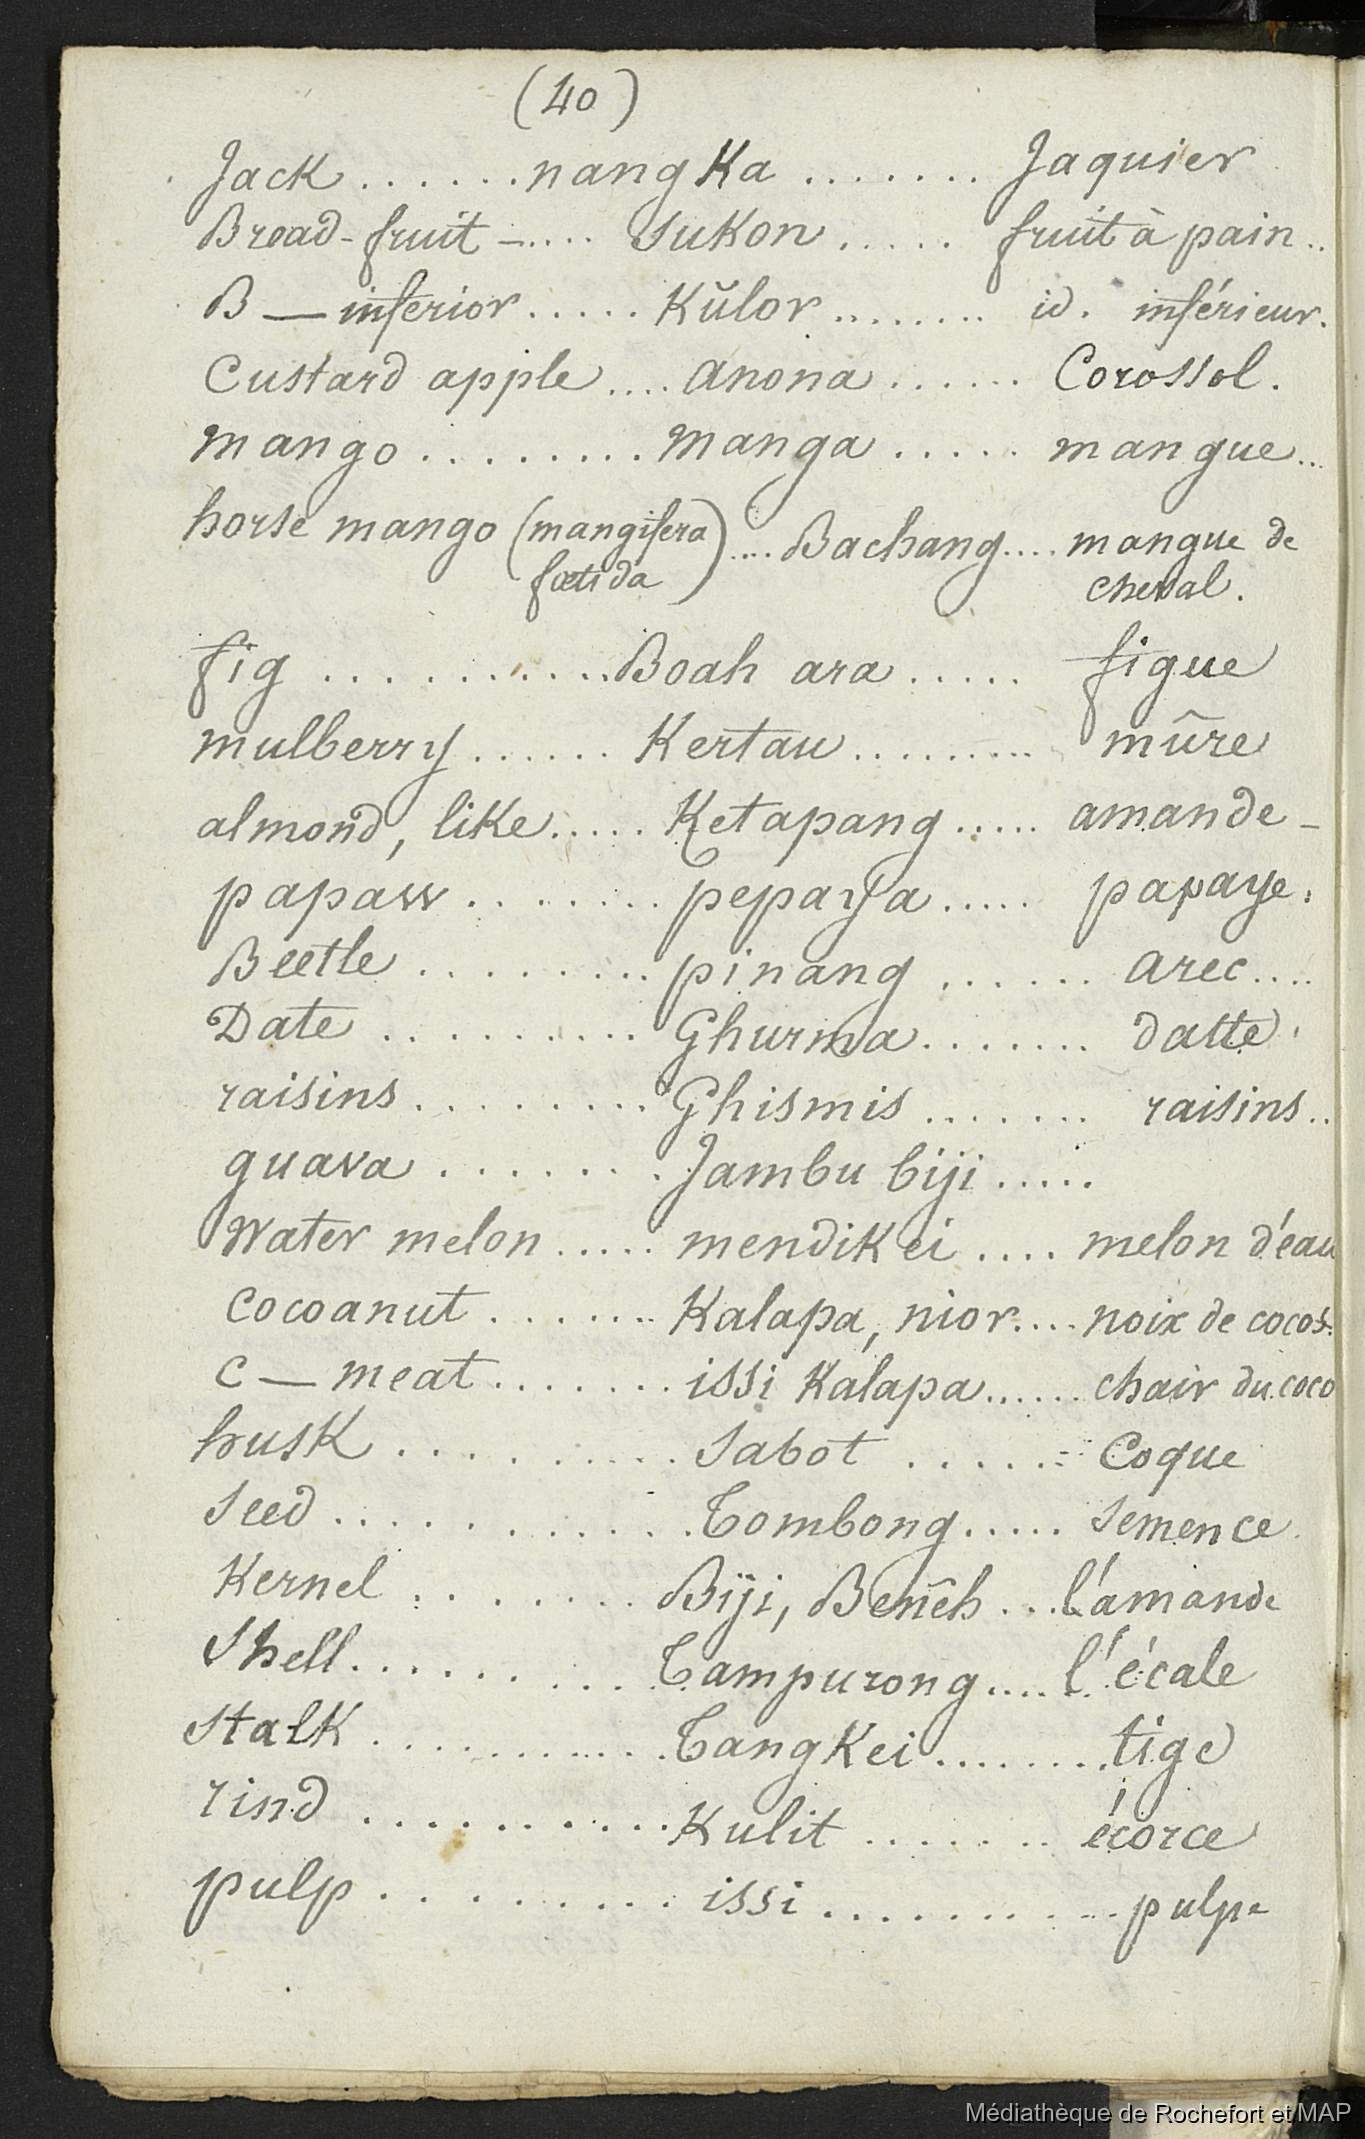 (40)
Jack ...... nangka ....... Jaquier
Bread-fruit -.... sukon ..... fruit à pain ..
B — inferior ..... Kŭlor ........ id. inférieur.
Custard apple .... anona ...... Corossol.
mango ......... manga ..... mangue ...
horse mango (mangifera foetida) .... Bachang .... mangue de
cheval.
fig ........... Boah ara ..... figue
mulberry ...... Kertau ......... mûre
almond, like ..... Ketapang ..... amande -
papaw ........ pepaya ..... papaye.
Beetle ......... pinang ...... arec ....
Date .......... Ghurma ....... datte.
raisins ......... Ghismis ....... raisins ..
guava ........ Jambu biji .....
Water melon ..... mendikei .... melon d'éau
Cocoanut ....... Kalapa, nior .... noix de cocos.
C — meat ....... issi Kalapa ...... chair du coco
husk .......... Sabot ...... Coque
Seed ............ Tombong ..... Semence
Kernel ....... Biji, Benēh ... l'amande
Shell .......... Tampurong .... l'écale
Stalk ........... Tangkei ........ tige
rind ........... Kulit ....... écorce
pulp ......... issi .......... pulpe
Médiathèque de Rochefort et MAP